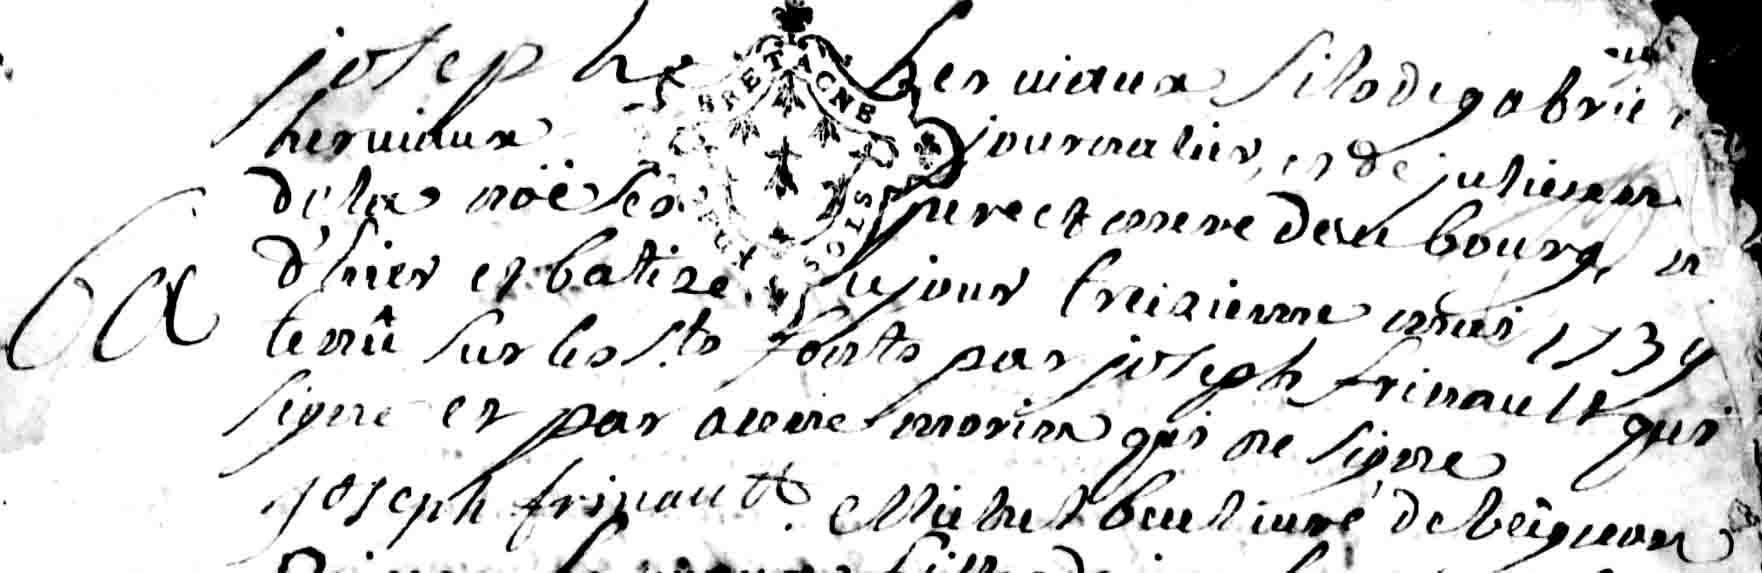 joseph herviaux fils de gabriel
herviaux journalier, et de julienne
de la noë ses pere et mere de ce bourg, né
d'hier et batize ce jour treizieme mai 1739
tenû sur les sts fonts par joseph frinault qui
signe et par anne morin qui ne signe
joseph frinault. Michel beculiuré de beignon
BRETAGNE
SOLS